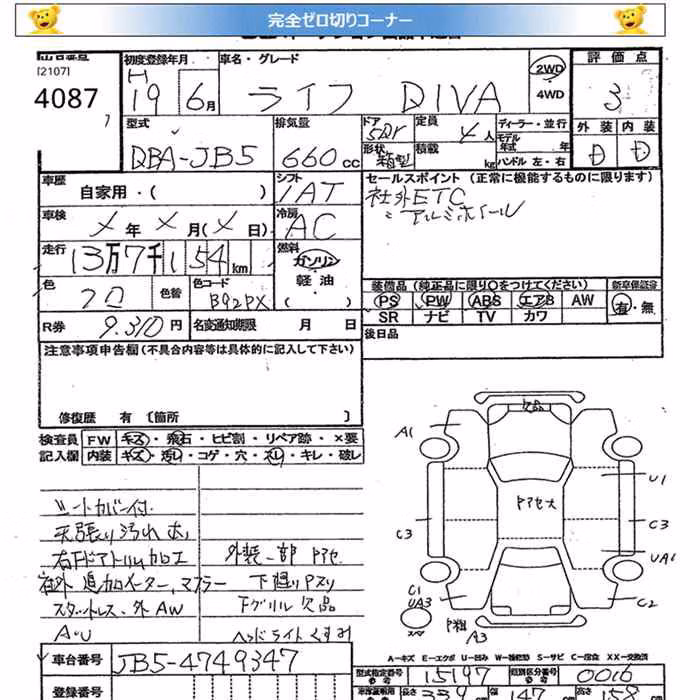 完全ゼロ切りコーナー
出品番号
[2107]
4087
初度登録年月
H
19 年 6月
車名・グレード
ライフ DIVA
2WD
4WD
評価点
3
外装 内装
D D
型式
DBA-JB5
排気量
660cc
ドア
5Dr
形状
箱型
定員
4人
積載
kg
ディーラー・並行
モデル
年式 年
ハンドル 左・右
車歴
自家用・( )
シフト
IAT
セールスポイント (正常に機能するものに限ります)
社外ETC
〃 アルミホイール
車検
メ年メ月(メ日)
冷房
AC
走行
13万7千154km
燃料
ガソリン
軽油
( )
色
クロ
色替
色コード
B92PX
装備品 (純正品に限り○をつけてください)
新車保証書
PS PW ABS エアB AW
有・無
SR ナビ TV カワ
R券 9.310円
名変通知期限 月 日
後日品
注意事項申告欄(不具合内容等は具体的に記入して下さい)
修復歴 有 〔箇所 〕
検査員
記入欄
FW キズ・飛石・ヒビ割・リペア跡・×要
内装 キズ・汚レ・コゲ・穴・スレ・キレ・破レ
シートカバー付
天張り汚れ大
右Fドアトリムカロエ
社外 追加メーター、マフラー
スタットレス、外AW
A・U
外装一部 Pアセ
下廻りPスリ
Fグリル欠品
ヘッドライトくすみ
欠品
A1
U1
Pアセ大
C3
C3
UA1
C1
UA3
C2
P粗
A3
A=キズ E=エクボ U=凹み W=補修跡 S=サビ C=腐食 XX=交換済
車台番号
JB5-4749347
登録番号
型式指定番号
15197
類別区分番号
0016
長さ
339
幅
147
高さ
158